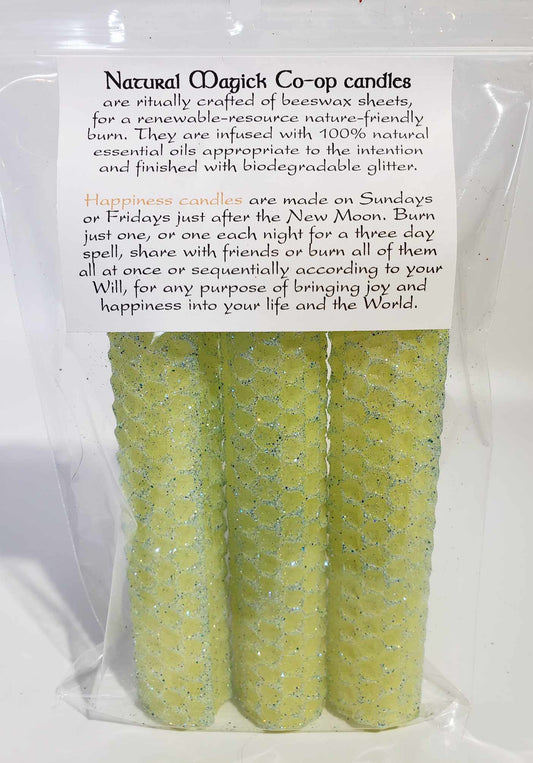 Natural Magick Co-op candles
are ritually crafted of beeswax sheets,
for a renewable-resource nature-friendly
burn. They are infused with 100% natural
essential oils appropriate to the intention
and finished with biodegradable glitter.
Happiness candles are made on Sundays
or Fridays just after the New Moon. Burn
just one, or one each night for a three day
spell, share with friends or burn all of them
all at once or sequentially according to your
Will, for any purpose of bringing joy and
happiness into your life and the World.